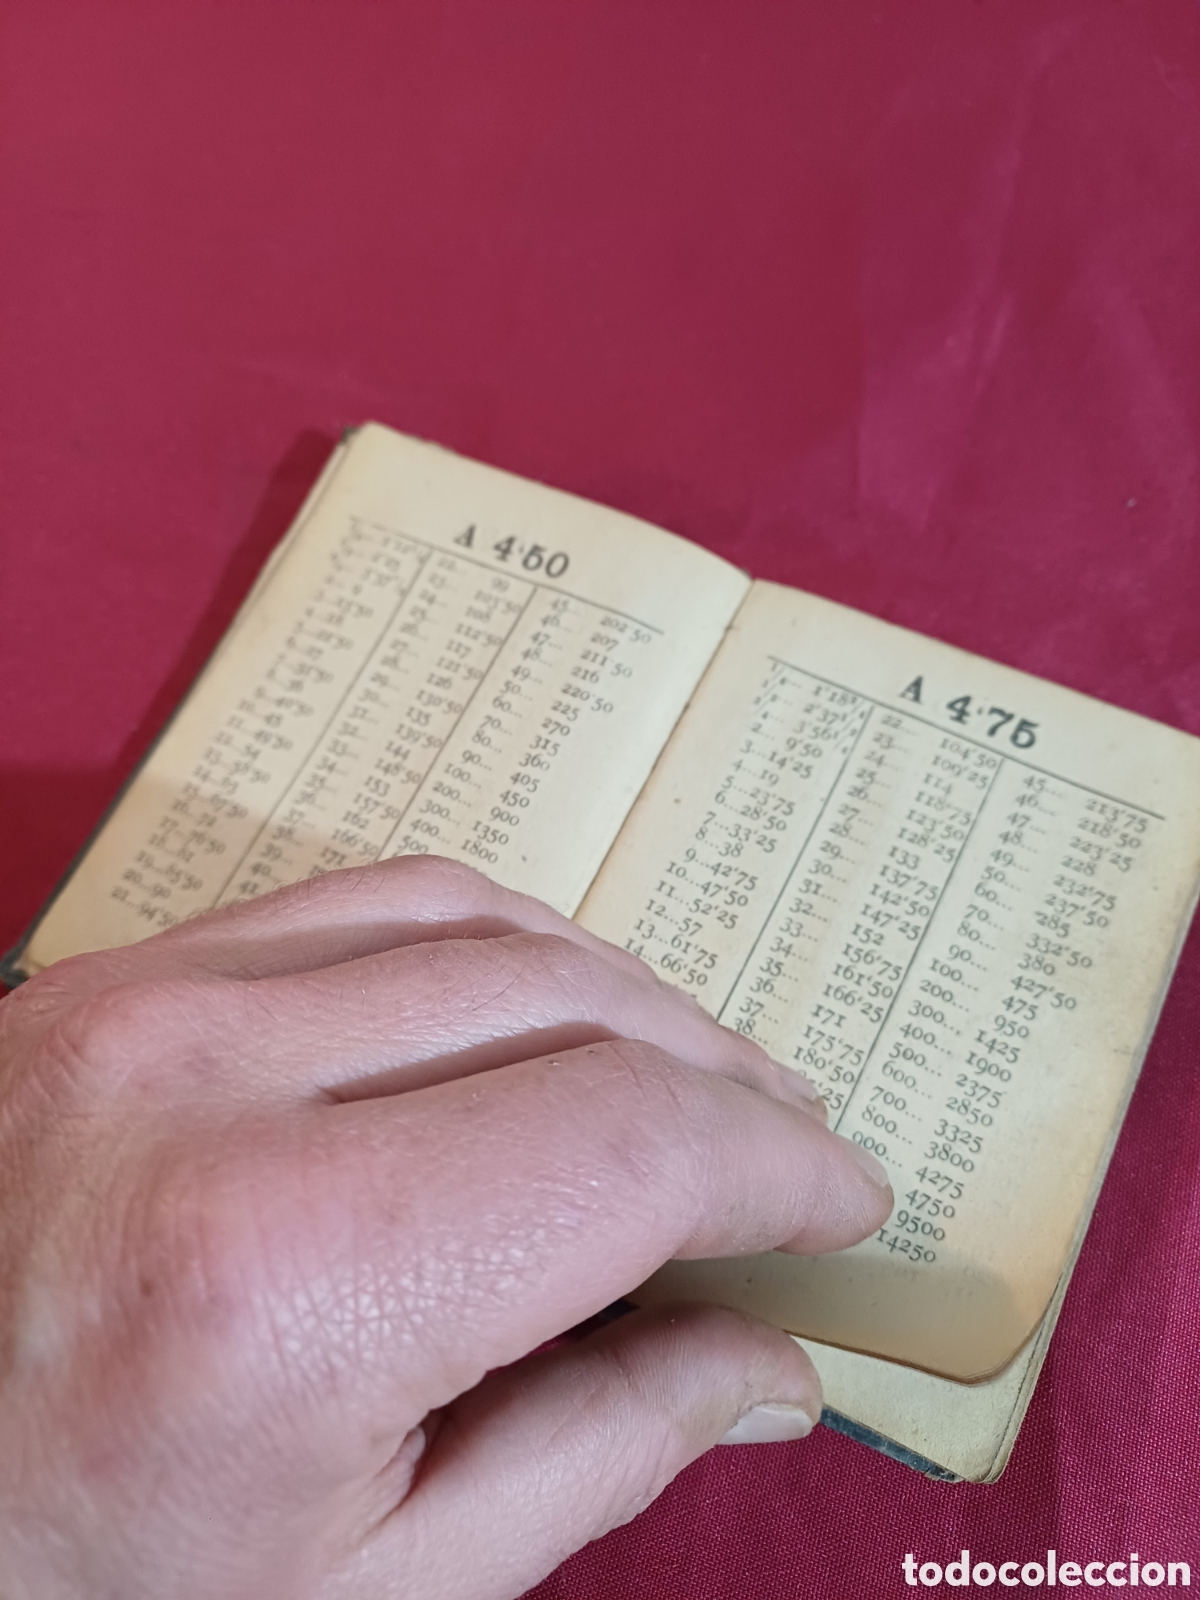 A 4'50
2... 9
3...13'50
4...18
5...22'50
6...27
7...31'50
8...36
9...40'50
10...45
11...49'50
12...54
13...58'50
14...63
15...67'50
16...72
17...76'50
18...81
19...85'50
20...90
21...94'50
22... 99
23... 103'50
24... 108
25... 112'50
26... 117
27... 121'50
28... 126
29... 130'50
30... 135
31... 139'50
32... 144
33... 148'50
34... 153
35... 157'50
36... 162
37... 166'50
38... 171
39...
40...
41
45... 202'50
46... 207
47... 211'50
48... 216
49... 220'50
50... 225
60... 270
70... 315
80... 360
90... 405
100... 450
200... 900
300... 1350
400... 1800
500...
A 4'75
1/4... 1'18 3/4
1/2... 2'37 1/2
3/4... 3'56 1/4
2... 9'50
3...14'25
4...19
5...23'75
6...28'50
7...33'25
8...38
9...42'75
10...47'50
11...52'25
12...57
13...61'75
14...66'50
22... 104'50
23... 109'25
24... 114
25... 118'75
26... 123'50
27... 128'25
28... 133
29... 137'75
30... 142'50
31... 147'25
32... 152
33... 156'75
34... 161'50
35... 166'25
36... 171
37... 175'75
38... 180'50
45... 213'75
46... 218'50
47... 223'25
48... 228
49... 232'75
50... 237'50
60... 285
70... 332'50
80... 380
90... 427'50
100... 475
200... 950
300... 1425
400... 1900
500... 2375
600... 2850
700... 3325
800... 3800
900... 4275
4750
9500
14250
todocoleccion